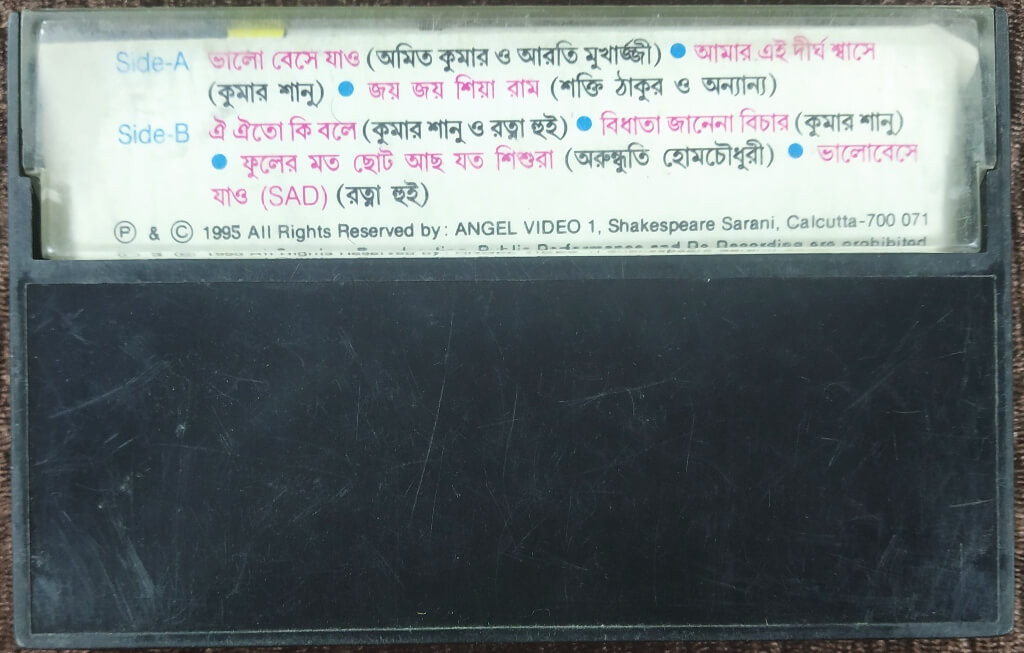 Side-A ভালো বেসে যাও (অমিত কুমার ও আরতি মুখার্জ্জী) ● আমার এই দীর্ঘ শ্বাসে
(কুমার শানু) ● জয় জয় শিয়া রাম (শক্তি ঠাকুর ও অন্যান্য)
Side-B ঐ ঐতো কি বলে (কুমার শানু ও রত্না হুই) ● বিধাতা জানেনা বিচার (কুমার শানু)
● ফুলের মত ছোট আছ যত শিশুরা (অরুন্ধুতি হোমচৌধুরী) ● ভালোবেসে
যাও (SAD) (রত্না হুই)
Ⓟ & © 1995 All Rights Reserved by: ANGEL VIDEO 1, Shakespeare Sarani, Calcutta-700 071